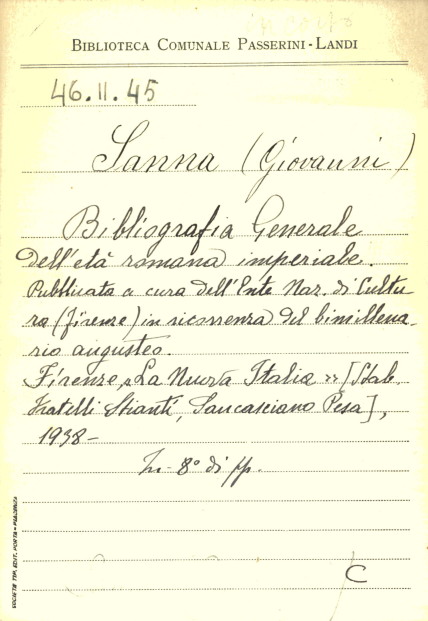 BIBLIOTECA COMUNALE PASSERINI-LANDI
46.II.45
Sanna (Giovanni)
Bibliografia Generale
dell'età romana imperiale.
Pubblicata a cura dell'Ente Naz. di Cultu
ra (Firenze) in ricorrenza del bimillena-
rio augusteo.
Firenze, "La Nuova Italia" [Stab.
Fratelli Stianti, Sancasciano Pesa],
1938-
In-8° di pp.
C
SOCIETÀ TIP. EDIT. PORTA-PIACENZA